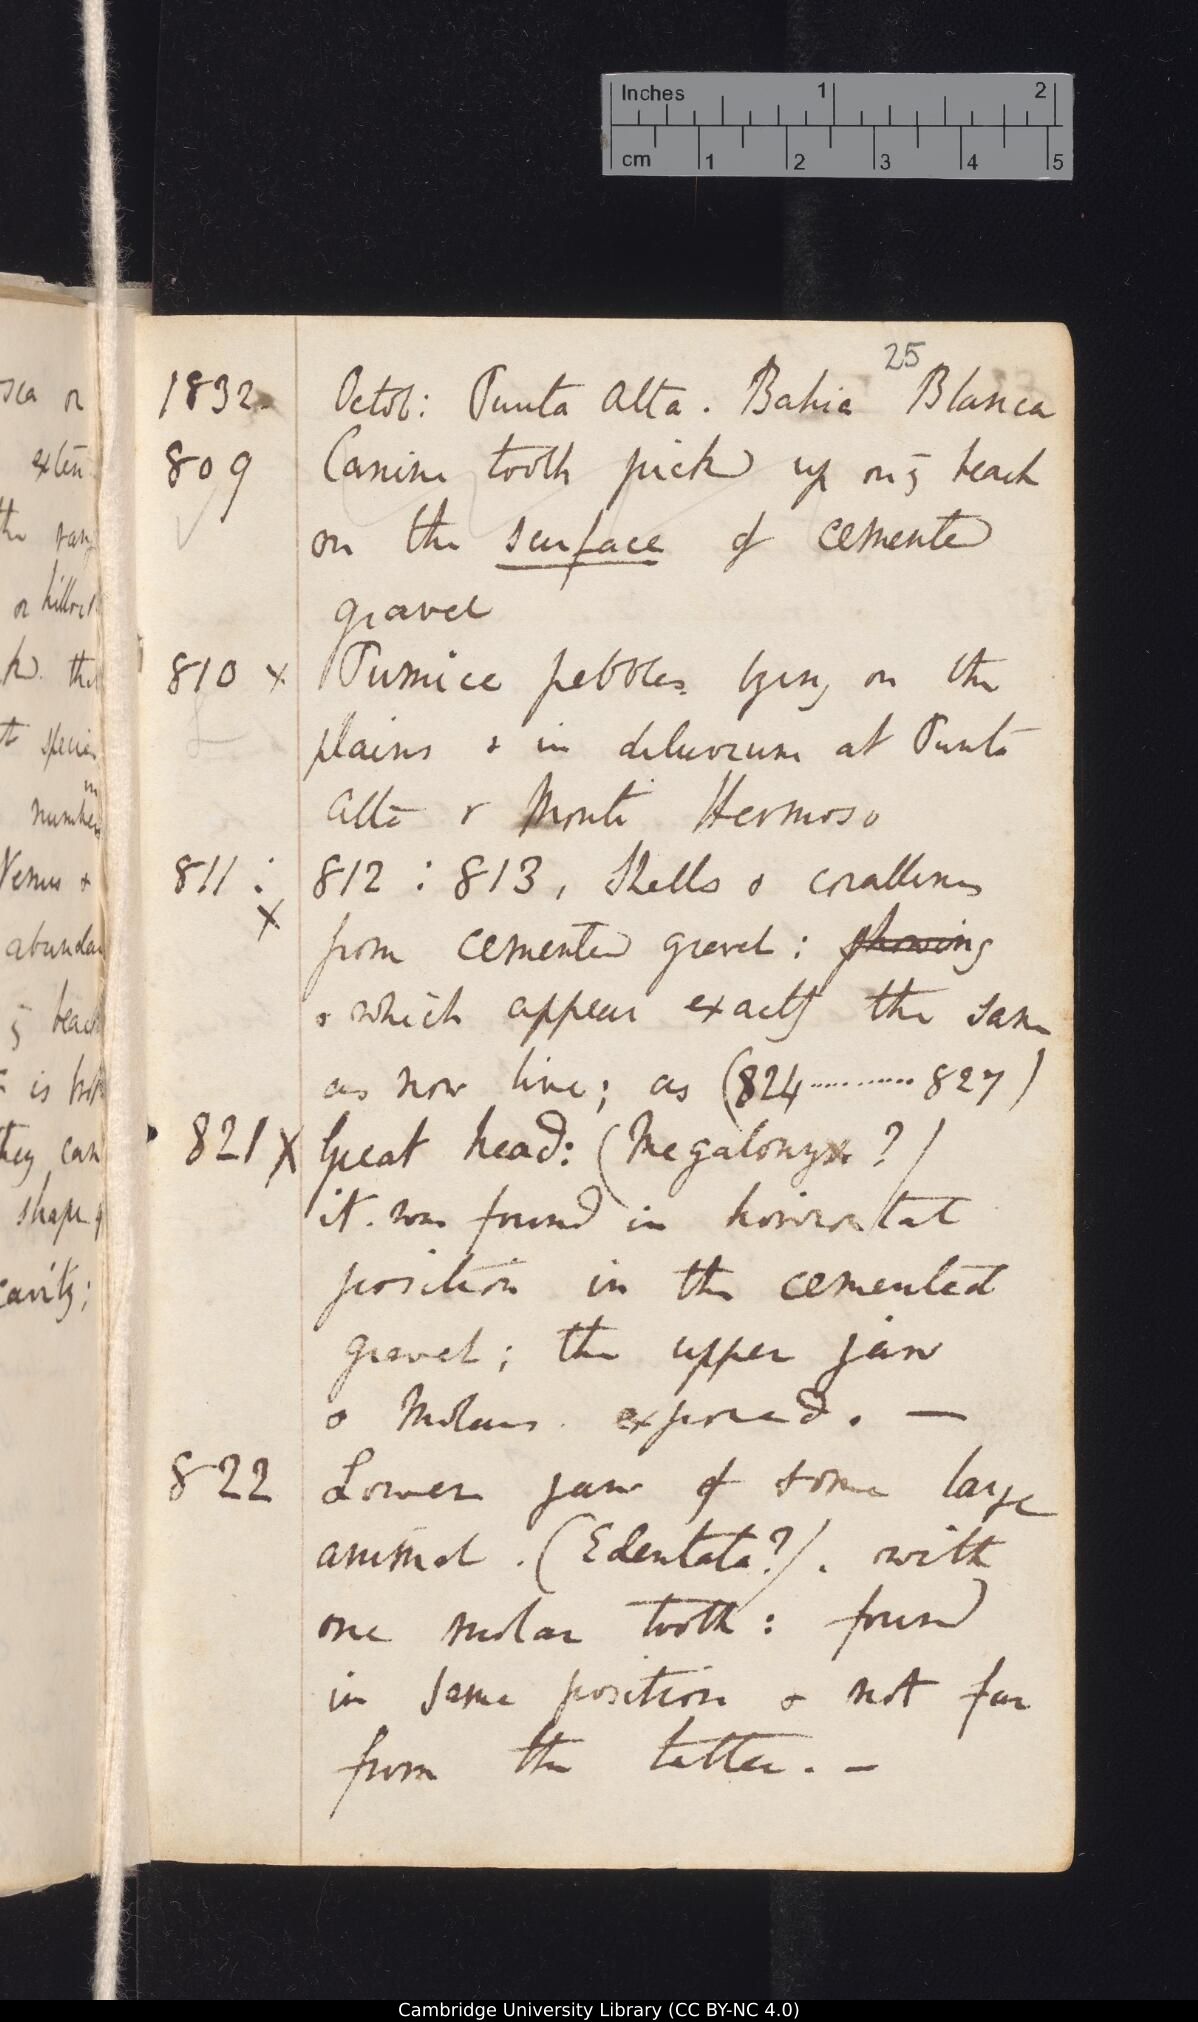 Inches 1 2
cm 1 2 3 4 5
25
1832. Octob: Punta Alta. Bahia Blanca
809 Canine tooth pick up on beach
on the surface of cemented
gravel
810 x Pumice pebbles lying on the
plains & in diluvium at Punta
Alta & Monte Hermoso
811 : 812 : 813, Shells & corallines
x from cemented gravel: showing
& which appear exactly the same
as now live; as (824 ........... 827)
821 X Great head: (Megalonyx?)
it was found in horizontal
position in the cemented
gravel; the upper jaw
& Molars exposed. —
822 Lower jaw of some large
animal. (Edentata?). with
one molar tooth: found
in same position & not far
from the latter. —
sea or
exten
the
or hilloc
the
specie
in
number
Venus &
abundan
beach
is
they can
shape
cavity;
Cambridge University Library (CC BY-NC 4.0)